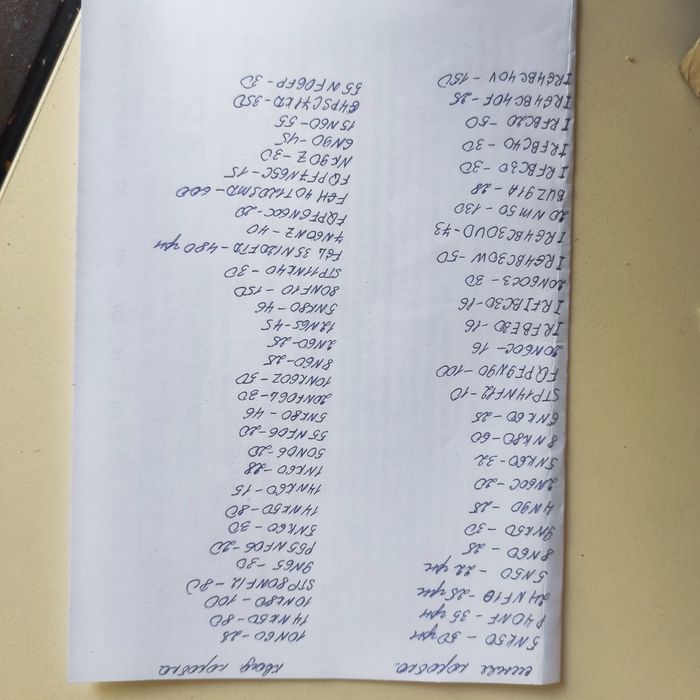 синяя коробка
5NK50 - 30грн
P40NF - 35грн
24NF10 - 25грн
5N50 - 22грн
8N60 - 25
9NK50 - 30
4N90 - 25
2N60C - 20
5NK60 - 32
8NK80 - 60
6NK60 - 25
STP14NF12 - 10
FQPF9N90 - 100
20N60C - 16
IRFBE30 - 16
IRFIBC30 - 16
20N60C3 - 30
IRG4BC30W - 50
IRG4BC30UD - 73
20NM50 - 130
BUZ91A - 28
IRFBC30 - 30
IRFBC40 - 30
IRFBC20 - 50
IRG4BC40F - 25
IRG4BC40V - 150
квад коробка
10N60 - 25
14NK50 - 80
10NK80 - 100
STP80NF12 - 80
9N65 - 30
P55NF06 - 20
5NK60 - 30
14NK50 - 80
14NK60 - 15
1NK60 - 28
50N06 - 20
55NF06 - 20
5NK80 - 46
20NF06L - 30
10NK60Z - 50
8N60 - 25
2N60 - 25
12N65 - 45
5NK80 - 46
80NF10 - 150
STP11NK40 - 30
FGL35N120FTD - 480грн
4N60NZ - 40
FQPF6N60C - 20
FGH40T120SMD - 600
FQPF7N65C - 15
NK90Z - 30
6N90 - 45
15N60 - 55
G4PSC71KD - 350
55NF06FP - 30